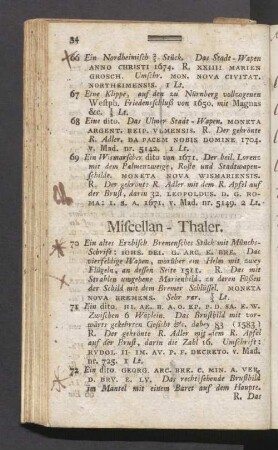 34
66 Ein Nordheimisch ⅔ Stück. Das Stadt-Wapen
ANNO CHRISTI 1674. R. XXIIII MARIEN
GROSCH. Umschr. MON. NOVA CIVITAT.
NORTHEIMENSIS. 1 Lt.
67 Eine Klippe, auf den zu Nürnberg vollzogenen
Westph. Friedensschluß von 1650, mit Magnus
&c. ½ Lt.
68 Eine dito. Das Ulmer Stadt-Wapen. MONETA
ARGENT. REIP. VLMENSIS. R. Der gekrönte
R. Adler, DA PACEM NOBIS DOMINE 1704.
v. Mad. nr. 5142. 1 Lt.
69 Ein Wismarscher dito von 1671. Der heil. Lorenz
mit dem Palmenzweige, Roste und Stadtwapen-
schilde. MONETA NOVA WISMARIENSIS.
R. Der gekrönte R. Adler mit dem R. Apfel auf
der Brust, darin 32. LEOPOLDUS. D. G. RO-
MA: I. S. A. 1671. v. Mad. nr. 5149. 2 Lt.
Miscellan-Thaler.
70 Ein altes Erzbisch. Bremensches Stück mit Münch-
Schrift: IOHS. DEI. G. ARC. E. BRE. Das
vierfeldige Wapen, worüber ein Helm mit zwey
Flügeln, an dessen Seite 1511. R. Das mit
Strahlen umgebene Marienbild, zu deren Füssen
der Schild mit dem Bremer Schlüssel. MONETA
NOVA BREMENS. Sehr rar. ½ Lt.
71 Ein dito.
Zwischen 6 Wäplein. Das Brustbild mit vor-
wärts gekehrten Gesicht &c. dabey 83 (1583)
R. Der gekrönte R. Adler mit dem R. Apfel
auf der Brust, darin die Zahl 16. Umschrift:
RVDOL. II. IM. AV. P. F. DECRETO. v. Mad.
nr. 725. 1 Lt.
72 Ein dito. GEORG. ARC. BRE. C. MIN. A. VER.
D. BRV. E. LV. Das rechtsehende Brustbild
im Mantel mit einem Baret auf dem Haupte.
R. Das